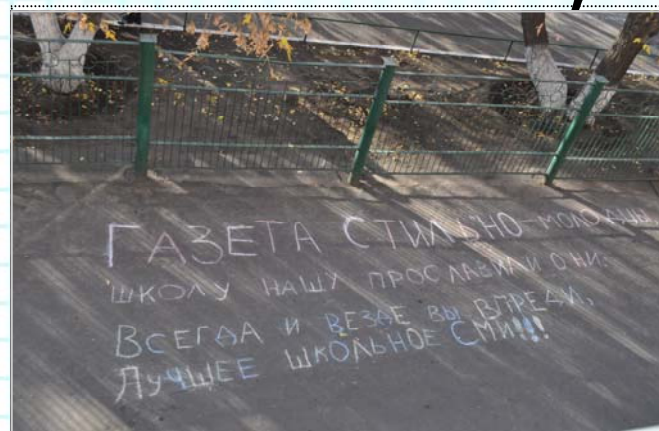 ГАЗЕТА СТИЛЬНО-МОЛОДЦЫ,
ШКОЛУ НАШУ ПРОСЛАВИЛИ ОНИ.
ВСЕГДА И ВЕЗДЕ ВЫ ВПРЕДИ,
ЛУЧЩЕЕ ШКОЛЬНОЕ СМИ!!!!